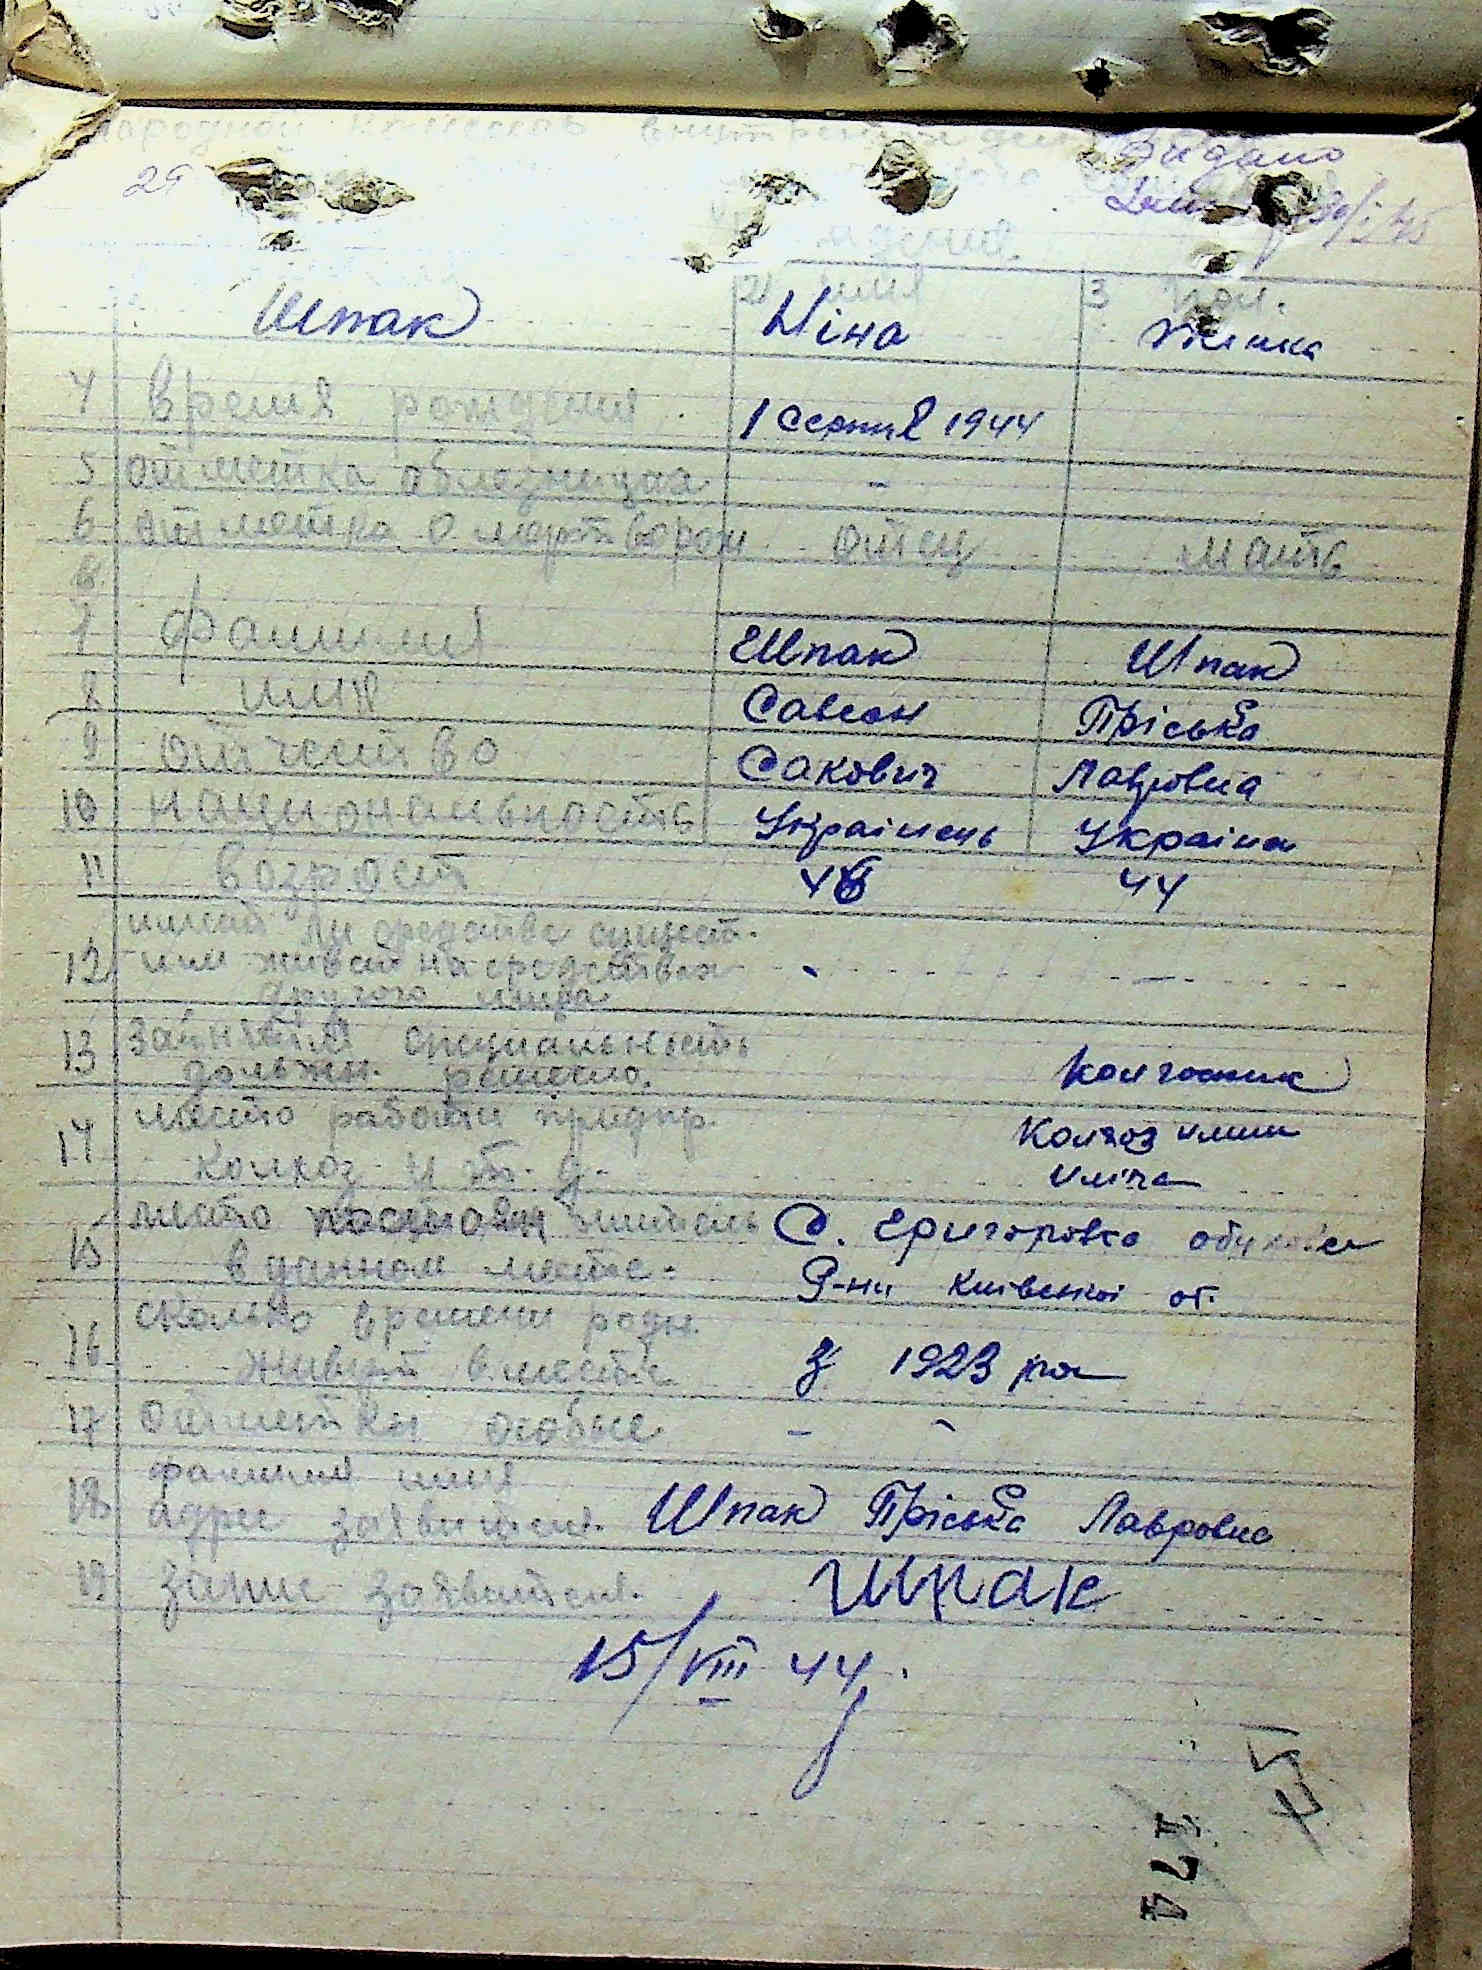 Народной комиссар внутренних дел
29
Видано
30/I 45
2 имя 3 пол.
Шпак Ніна жінка
4 время рождения 1 серпня 1944
5 отметка о близнецах -
6 отметка о мертворож отец мать
7 фамилия Шпак Шпак
8 имя Савсон Пріська
9 отчество Сакович Лавровна
10 национальность Українець Україна
11 возраст 46 44
имеет ли средства сущест.
12 или живет на средствах - —
другого лица
13 занятия специальность
должн. ремесло. колгосник
14 место работы предпр. Колгоз имени
колхоз и т. д. Іліча
15 место постоян жительс С. Григоровка обухівск
в данном месте. Р-ну Київської об.
сколько времени родн.
16 живут вместе З 1923 рок
17 отметки особые - -
фамилия имя
18 адрес заявител. Шпак Пріська Лавровна
19 запис заявител. Шпак
15/VIII 44.
274